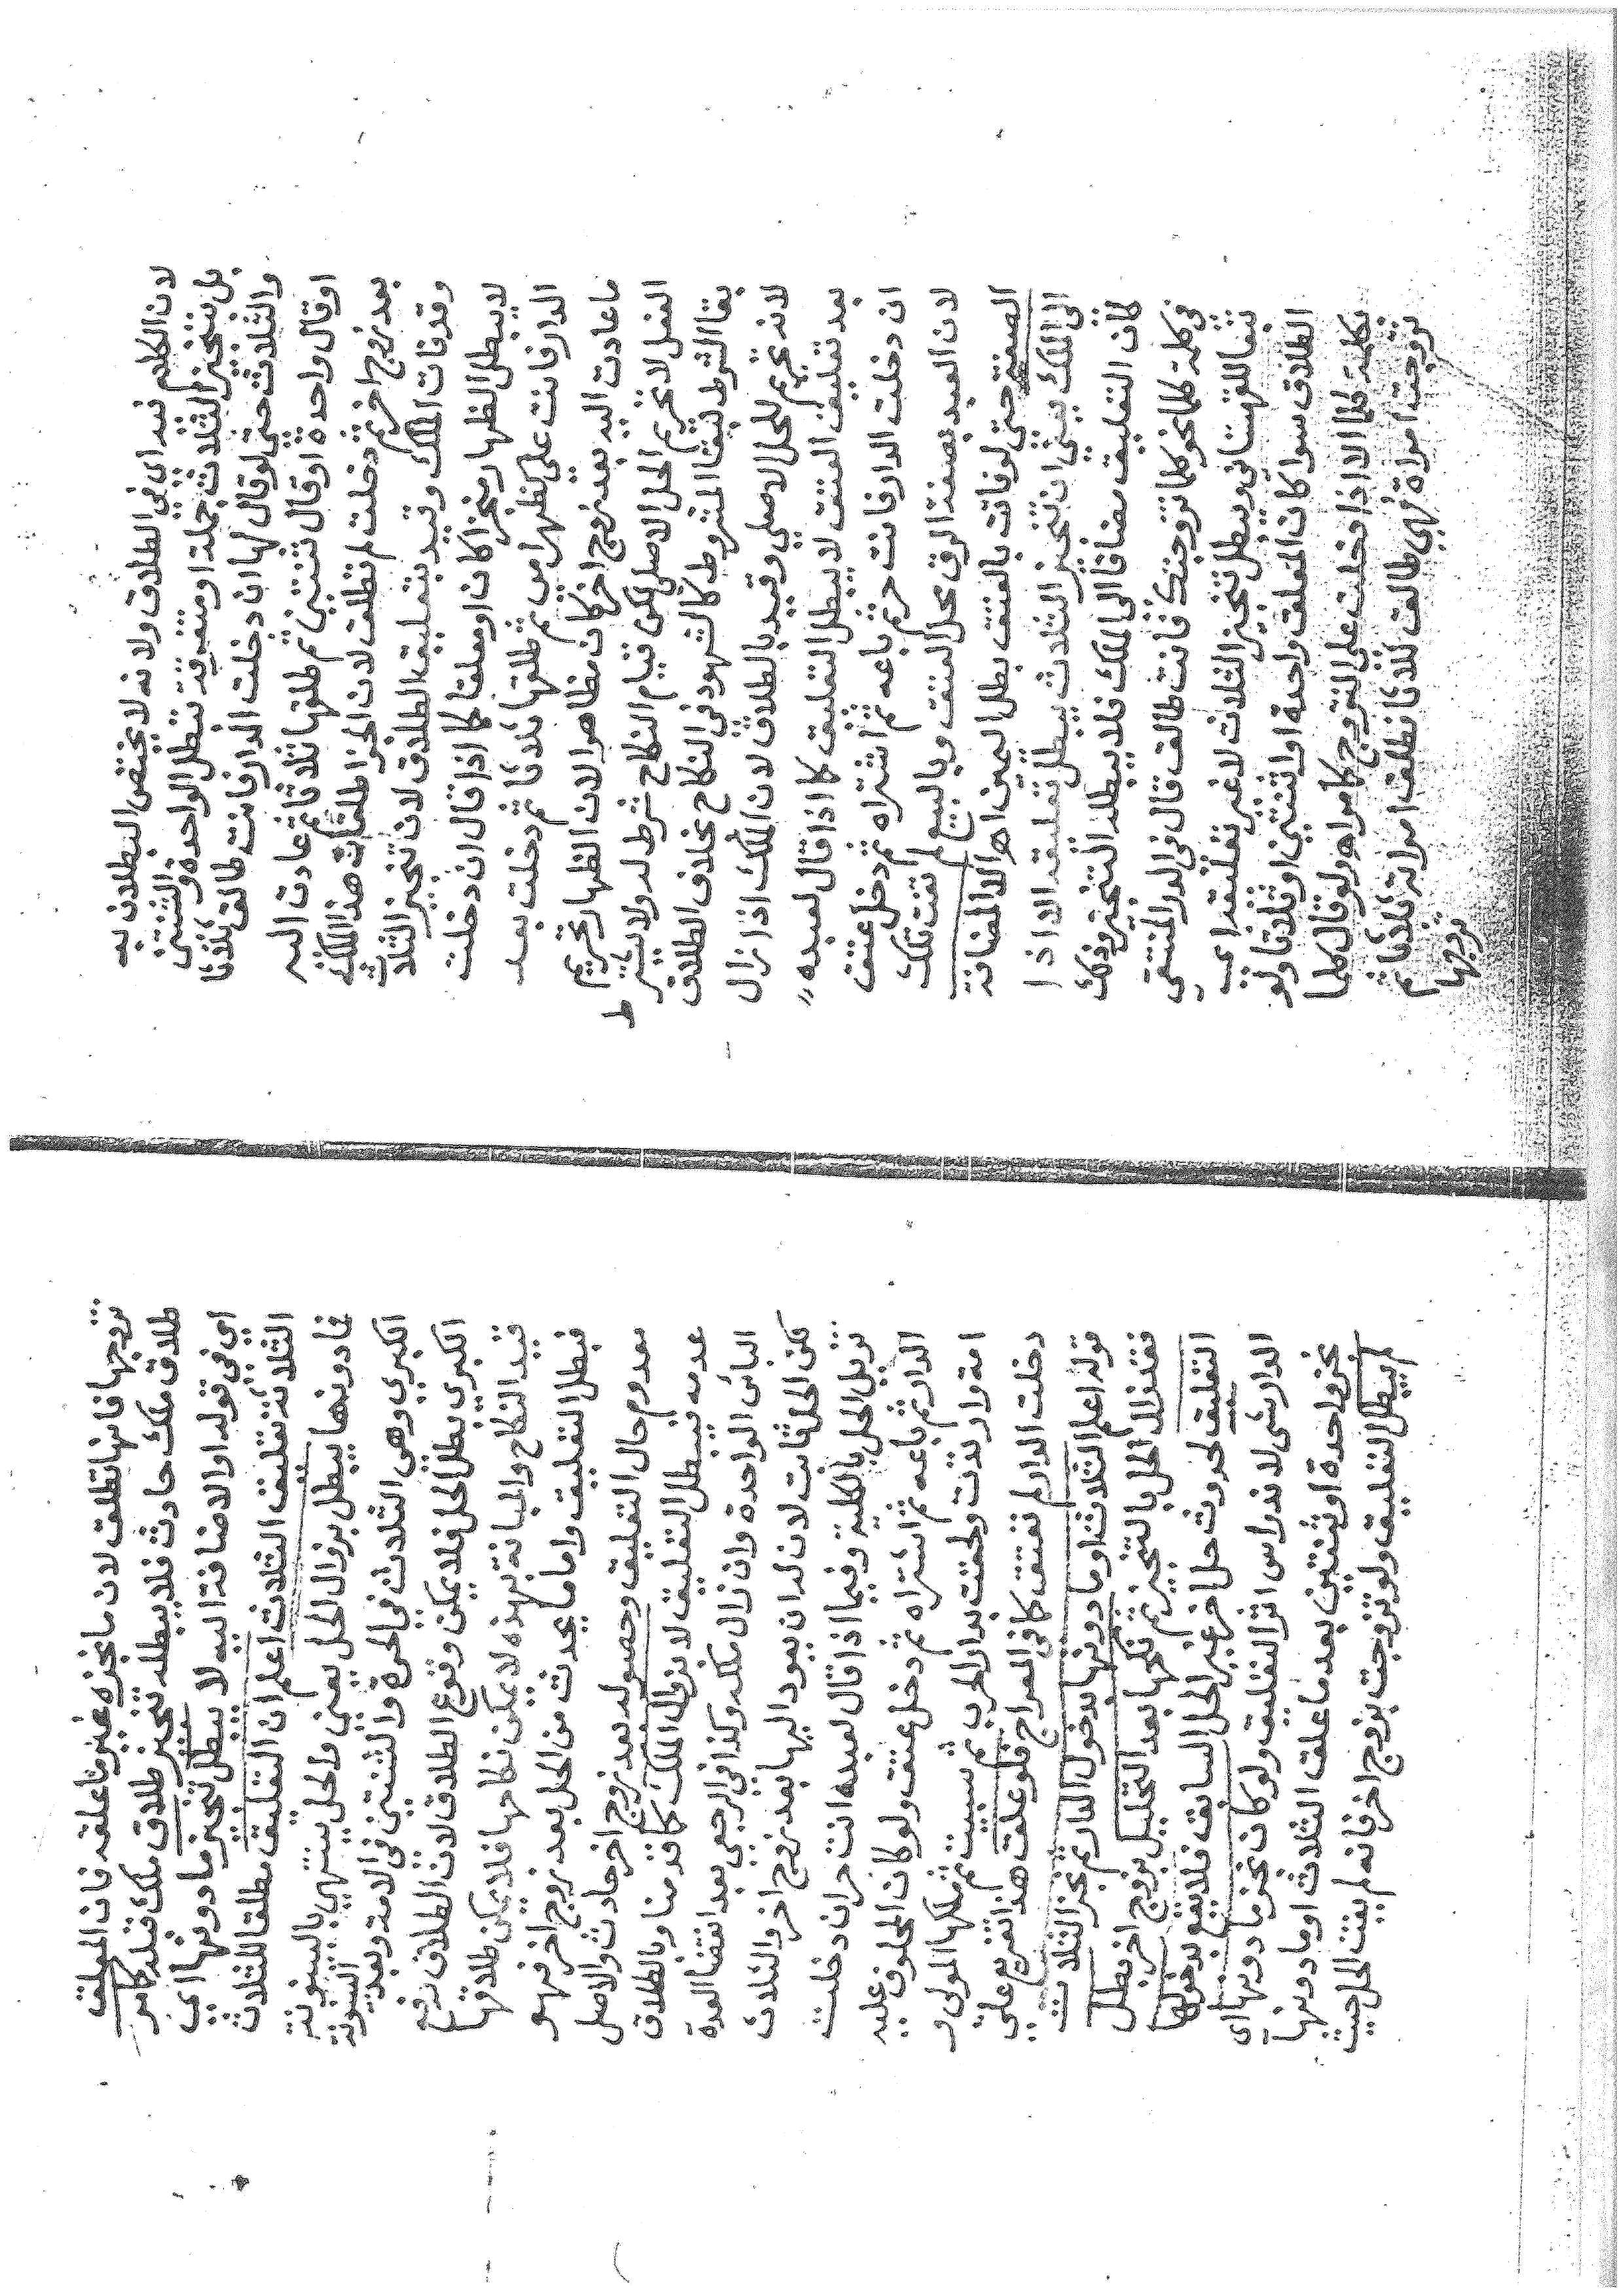 لان الكلام فيه اى فى الطلاق ولانه لا يختص البطلان به
بل تنجيز الثلاث جملة او متفرقة تبطل الواحدة والثنتين
والثلاث حتى لو قال لها ان دخلت الدار فانت طالق ثلاثا
او قال واحدة او قال ثنتين ثم طلقها ثلاثا ثم عادت اليه
بعد زوج اخر ثم دخلت لم تطلق لان الجزا طلقات هذا الملك
وقد فات الملك وقيد بتعليق الطلاق لان تنجيز الثلاث
لا يبطل الظهار منجزا كان او معلقا كما اذا قال ان دخلت
الدار فانت على كظهر امى ثم طلقها ثلاثا ثم دخلت بعد
ما عادت اليه بعد زوج اخر كان مظاهرا لان الظهار تحريم
الفعل لا تحريم الحل الاصلى لكن قيام النكاح شرط له ولا يشترط
بقا الشرط لبقا المشروط كالشهود فى النكاح بخلاف الطلاق
لانه تحريم للحل الاصلي وقيد بالطلاق لان الملك اذا زال
بعد تعليق العتق لا يبطل التعليق كما اذا قال لعبده
ان دخلت الدار فانت حر ثم باعه ثم اشتراه ثم دخل عتق
لان العبد بصفة الرق محل للعتق وبالبيع لم تفت تلك
الصفة حتى لو فاتت بالعتق بطل اليمين اهـ الا المضافة
الى الملك يعنى ان تنجيز الثلاث يبطل تعليقه الا اذا
كان التعليق مضافا الى الملك فلا يبطله التنجيز وذلك
فى كلمة كلما نحو كلما تزوجتك فانت طالق قال فى الدر المنتقى
تبعا للقهستانى ويبطل تنجيز الثلاث لا غير تعليقه اى
الطلاق سوا كان المعلق واحدة او ثنتين او ثلاثا ولو
بكلمة كلما الا اذا دخلت على التزوج كما مر اه ولو قال كلما
تزوجت امراة فهي طالق ثلاثا فطلق امراته ثلاثا ثم
تزوجها
تزوجها فانها تطلق لان ما نجزه غير ما علقه فان المعلق
طلاق ملك حادث فلا يبطله تنجيز طلاق ملك قبله كما مر
اى فى قوله او الاضافة اليه لا يبطل تنجيز ما دونها اى
الثلاثة تعليق الثلاث اعلم ان التعليق مطلقا للثلاث
فما دونها يبطل بزوال الحل يعنى والحل ينتهي بالبينونة
الكبرى وهى الثلاث فى الحرة والثنتين فى الامة وبعد البينونة
الكبرى بطل الحل فلا يمكن وقوع الطلاق لان الطلاق رفع
قيد النكاح والمبانة بهذه لا يمكن نكاحها فلا يمكن طلاقها
فبطل التعليق واما ما يحدث من الحل بعد زوج اخر فهو
معدوم حال التعليق وحصوله بعد زوج اخر حادث والاصل
عدمه فيبطل التعليق لا بزوال الملك كما قدمنا وبالطلاق
البائن الواحدة وان زال ملكه وكذا فى الرجعى بعد انقضا العدة
لكن الحل ثابت لان له ان يعود اليها بعد زوج اخر والثلاث
تزيل الحل بالكلية وفيما اذا قال لعبده انت حر ان دخلت
الدار ثم باعه ثم اشتراه ثم دخل عتق ولو كان المحلوف عليه
امة وارتدت ولحقت بدار الحرب ثم سبيت ثم ملكها المولى و
دخلت الدار لم تعتق كما فى المعراج فلو علق هذا تفريع على
قوله اعلم الثلاث او ما دونها بدخول الدار ثم نجز الثلاث
فقد زال الحل بالتنجيز ثم نكحها بعد التحليل بزوج اخر بطل
التعليق لحدوث حل اخر غير الحل السابق فلا يقع بدخولها
الدار شى لاندراس اثر التعليق ولو كان نجز ما دونها اى
نجز واحدة او ثنتين بعد ما علق الثلاث او ما دونها
لم يبطل التعليق ولو تزوجت بزوج اخر فانه لم يفت الحل حيث